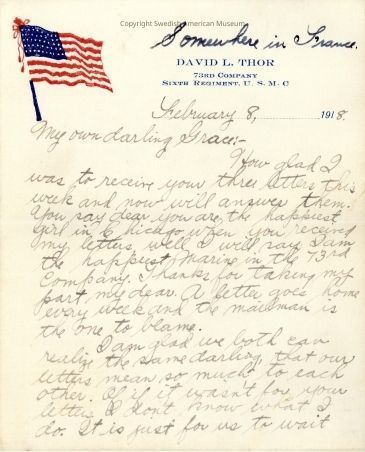 Copyright Swedish American Museum
Somewhere in France.
DAVID L. THOR
73RD COMPANY
SIXTH REGIMENT, U. S. M. C
February 8, 1918.
My own darling Grace:-
How glad I
was to receive your three letters this
week and now will answer them.
You say dear you are the happiest
girl in Chicago when you received
my letters, well I will say I am
the happiest Marine in the 73rd
Company. Thanks for taking my
part my dear. A letter goes home
every week and the mailman is
the one to blame.
I am glad we both can
realize the same darling, that our
letters mean so much to each
other. If it wasn't for your
letters I dont know what I
do. It is just for us to wait